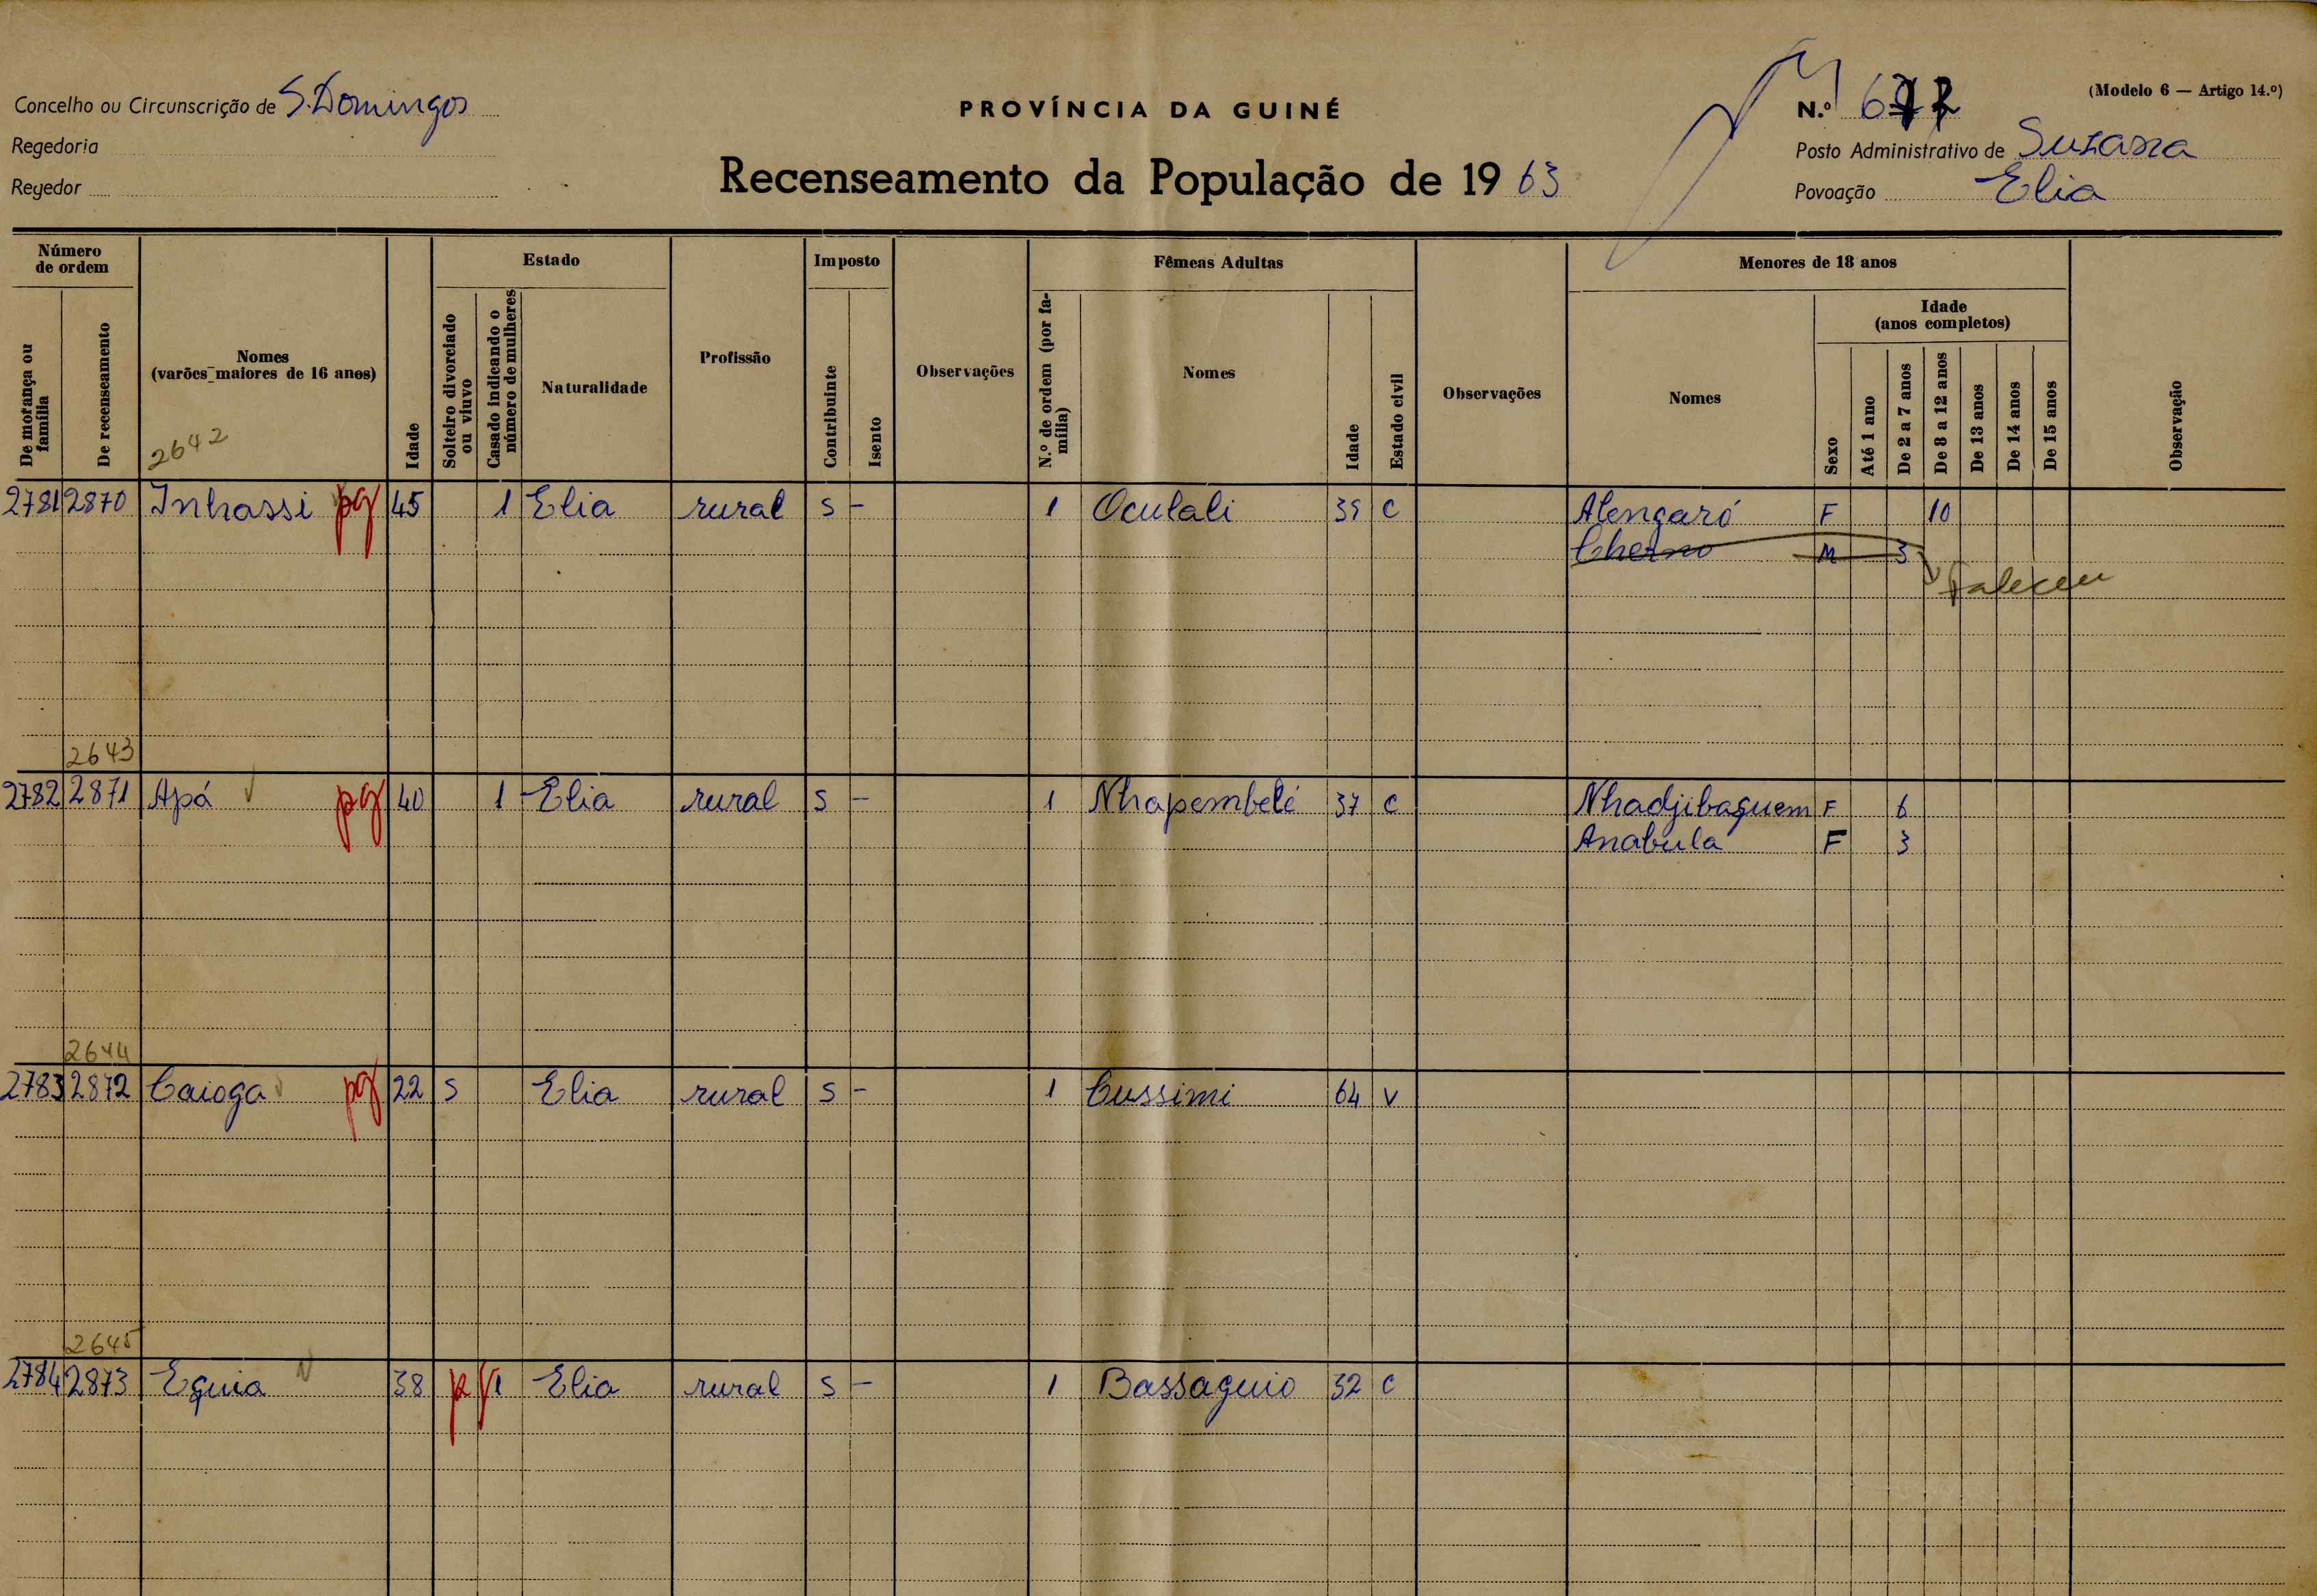 (Modelo 6 — Artigo 14.º)
Concelho ou Circunscrição de S. Domingos
PROVÍNCIA DA GUINÉ
N.º
Regedoria
Posto Administrativo de Suzana
Regedor
Recenseamento da População de 19 63
Povoação Elia
Número de ordem
De morança ou família
De recenseamento
Nomes
(varões maiores de 16 anos)
2642
Idade
Estado
Solteiro divorciado ou viuvo
Casado indicando o número de mulheres
Naturalidade
Profissão
Imposto
Contribuinte
Isento
Observações
Fêmeas Adultas
N.º de ordem (por família)
Nomes
Idade
Estado civil
Observações
Menores de 18 anos
Nomes
Sexo
Idade
(anos completos)
Até 1 ano
De 2 a 7 anos
De 8 a 12 anos
De 13 anos
De 14 anos
De 15 anos
Observação
2781 2870 Inhassi pg 45 1 Elia rural S - 1 Oculali C Alengaró F 10
Cherno M 3
Faleceu
2643
2782 2871 Apá pg 40 1 Elia rural S - 1 Nhapembelé 37 C Nhadjibaguem F 6
Anabula F 3
2644
2783 2872 Caioga pg 22 S Elia rural S - 1 Cussimi 64 V
2645
2784 2873 Eguia 38 pg 1 Elia rural S - 1 Bassaguio 32 C